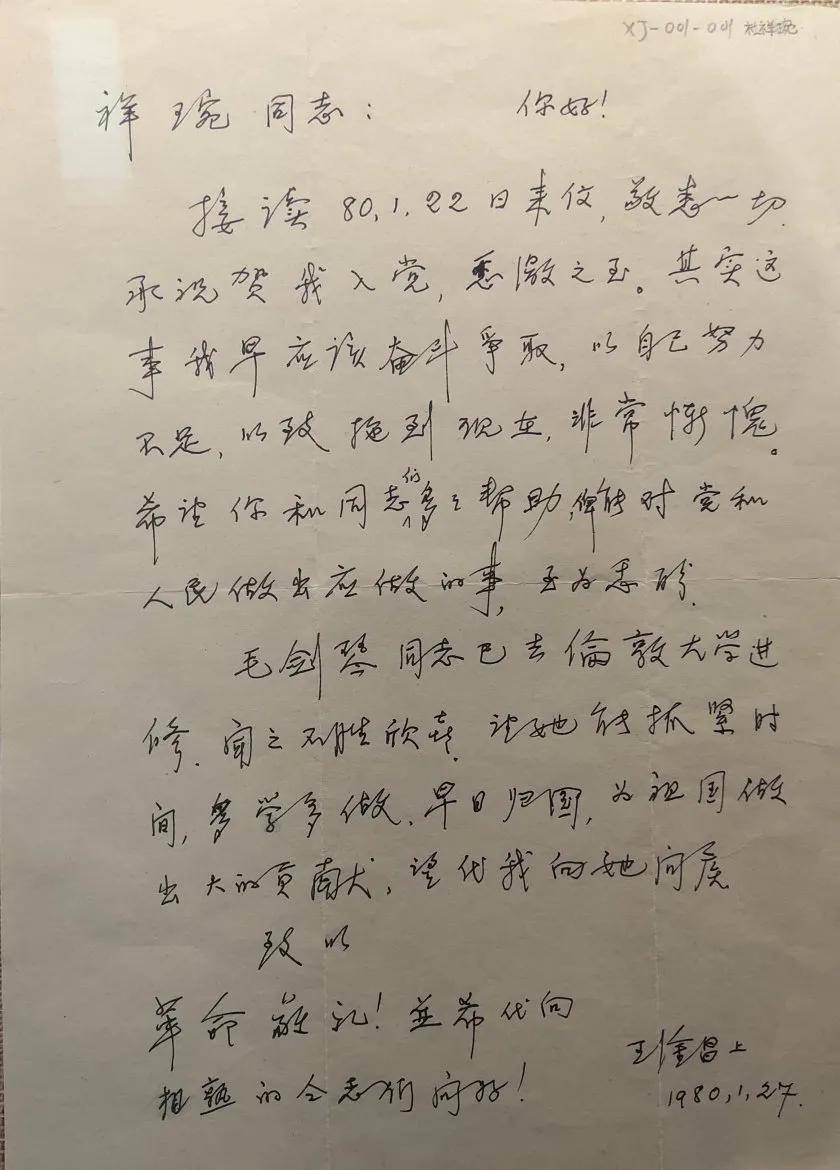 XJ-001-001 杜祥琬
祥琬同志： 你好！
接读80.1.22日来信，敬悉一切.
承祝贺我入党，感激之至。其实这
事我早应该奋斗争取，以自己努力
不足，以致拖到现在，非常惭愧。
希望你和同志们多多帮助，俾能对党和
人民做出应做的事，至为感盼.
毛剑琴同志已去倫敦大学进
修.闻之不胜欣喜.望她能抓紧时
间，多学多做、早日归国，为祖国做
出大的贡献，望代我向她问候
致以
革命敬礼！並希代向
相熟的同志们问好！
王淦昌上
1980.1.27.